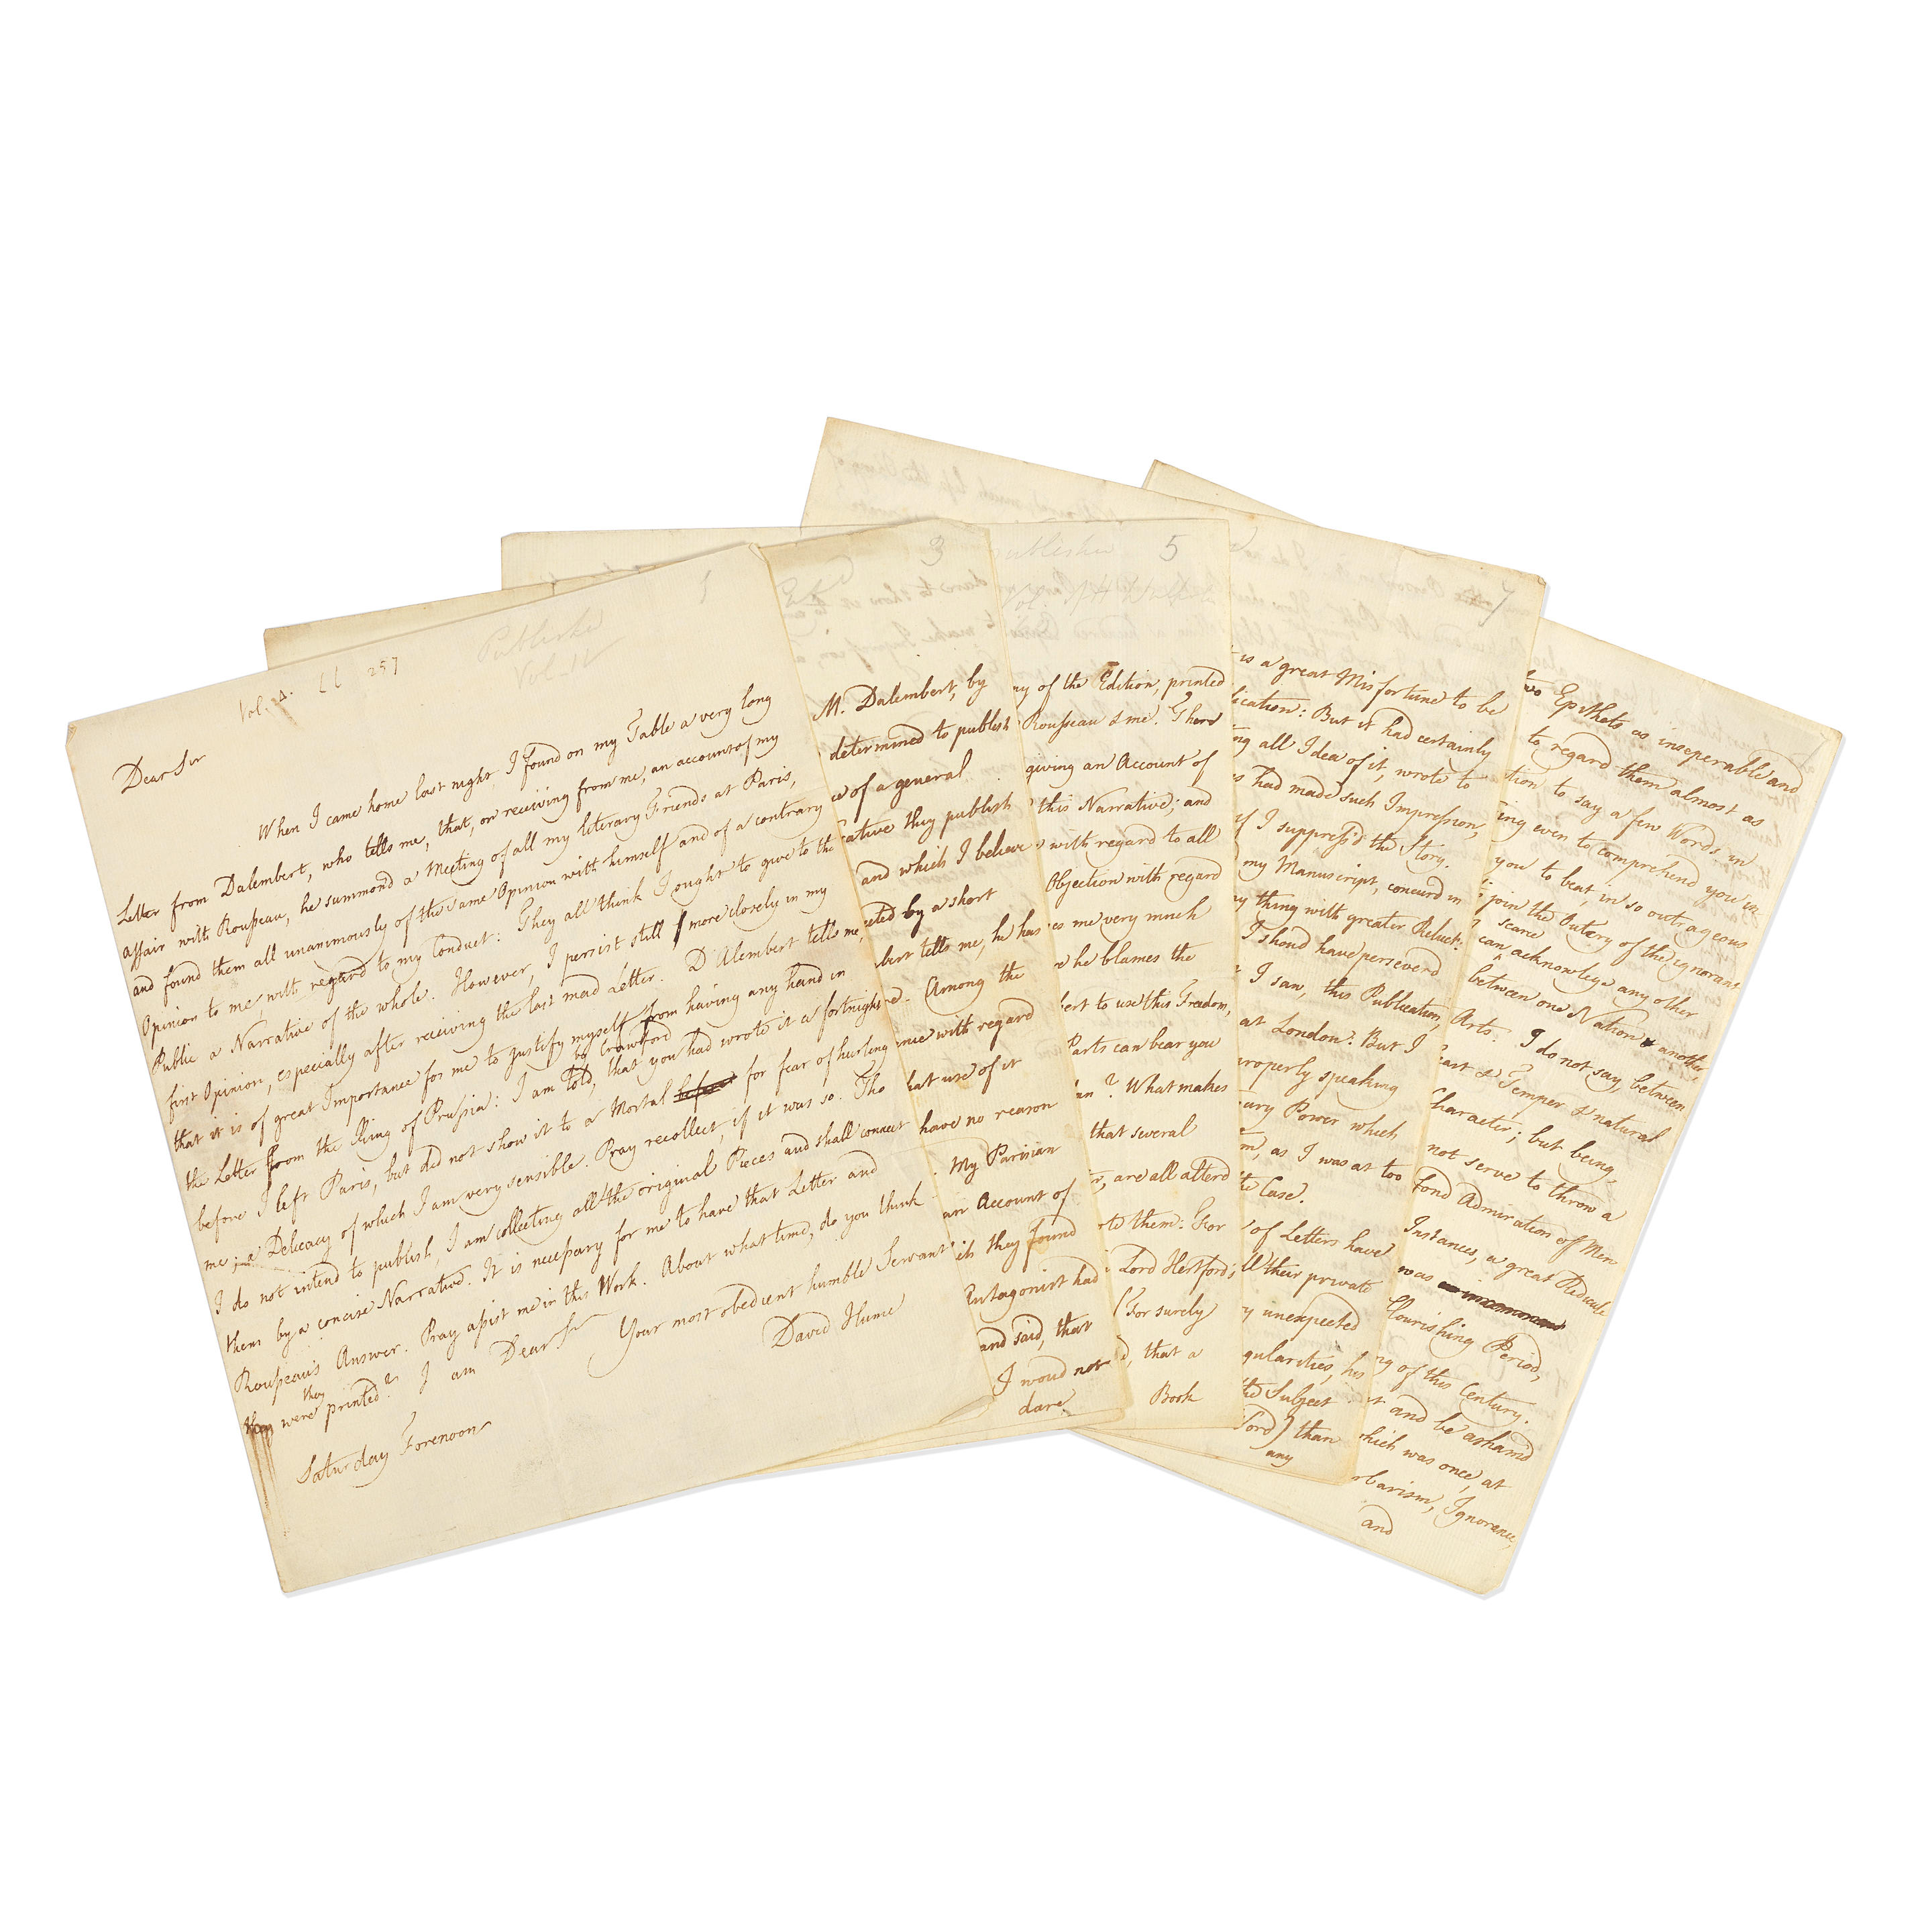 Vol. 4. LL 257
Publishd
Vol. IV
1
Dear Sir
When I came home last night, I found on my Table a very long
Letter from Dalembert, who tells me, that, on receiving from me, an account of my
affair with Rousseau, he summond a Meeting of all my literary Friends at Paris,
and found them all unanimously of the same Opinion with himself and of a contrary
Opinion to me, with regard to my Conduct: They all think I ought to give to the
Public a Narrative of the whole. However, I persist still more closely in my
first Opinion, especially after receiving the last mad Letter. D'Alembert tells me,
that it is of great Importance for me to justify myself from having any hand in
the Letter from the King of Prussia: I am told, to Crawford that you had wrote it a fortnight
before I left Paris, but did not show it to a Mortal for fear of hurting
me; a Delicacy of which I am very sensible. Pray recollect, if it was so. Tho
I do not intend to publish, I am collecting all the original Pieces and shall connect
them by a concise Narrative. It is necessary for me to have that Letter and
Rousseau's Answer. Pray assist me in this Work. About what time, do you think
they
they were printed? I am Dear Sir
Your most obedient humble Servant
David Hume
Saturday Forenoon
3
M. Dalembert, by
determined to publish
of a general
they publish
and which I believe
by a short
tells me, he has
Among the
with regard
use of it
have no reason
My Parisian
an Account of
they found
Antagonist had
and said, that
I woud not
dare
5
of the Edition, printed
Rousseau & me. There
giving an Account of
this Narrative; and
with regard to all
Objection with regard
me very much
he blames the
to use this Freedom,
Parts can bear you
? What makes
that several
are all alterd
to them: For
Lord Hertford's
(For surely
that a
Book
7
is a great Misfortune to be
: But it had certainly
all Idea of it, wrote to
had made such Impression,
if I suppress'd the Story.
my Manuscript, concurd in
thing with greater Reluct:
I shoud have perseverd
I saw, this Publication,
at London: But I
properly speaking
Power which
as I was at too
the Case.
of Letters have
their private
unexpected
his
the Subject
) than
any
two Epithets as inseperable and
to regard them almost as
to say a few Words in
even to comprehend you in
you to beat, in so outrageous
join the Outcry of the ignorant
scarce
can acknowlege any other
between one Nation & another,
Arts. I do not say, between
& Temper & natural
Character; but being,
not serve to throw a
fond Admiration of Men
Instances, a great Ridicule
was
flourishing Period,
of this Century.
and be ashamd
which was once, at
Ignorance,
and